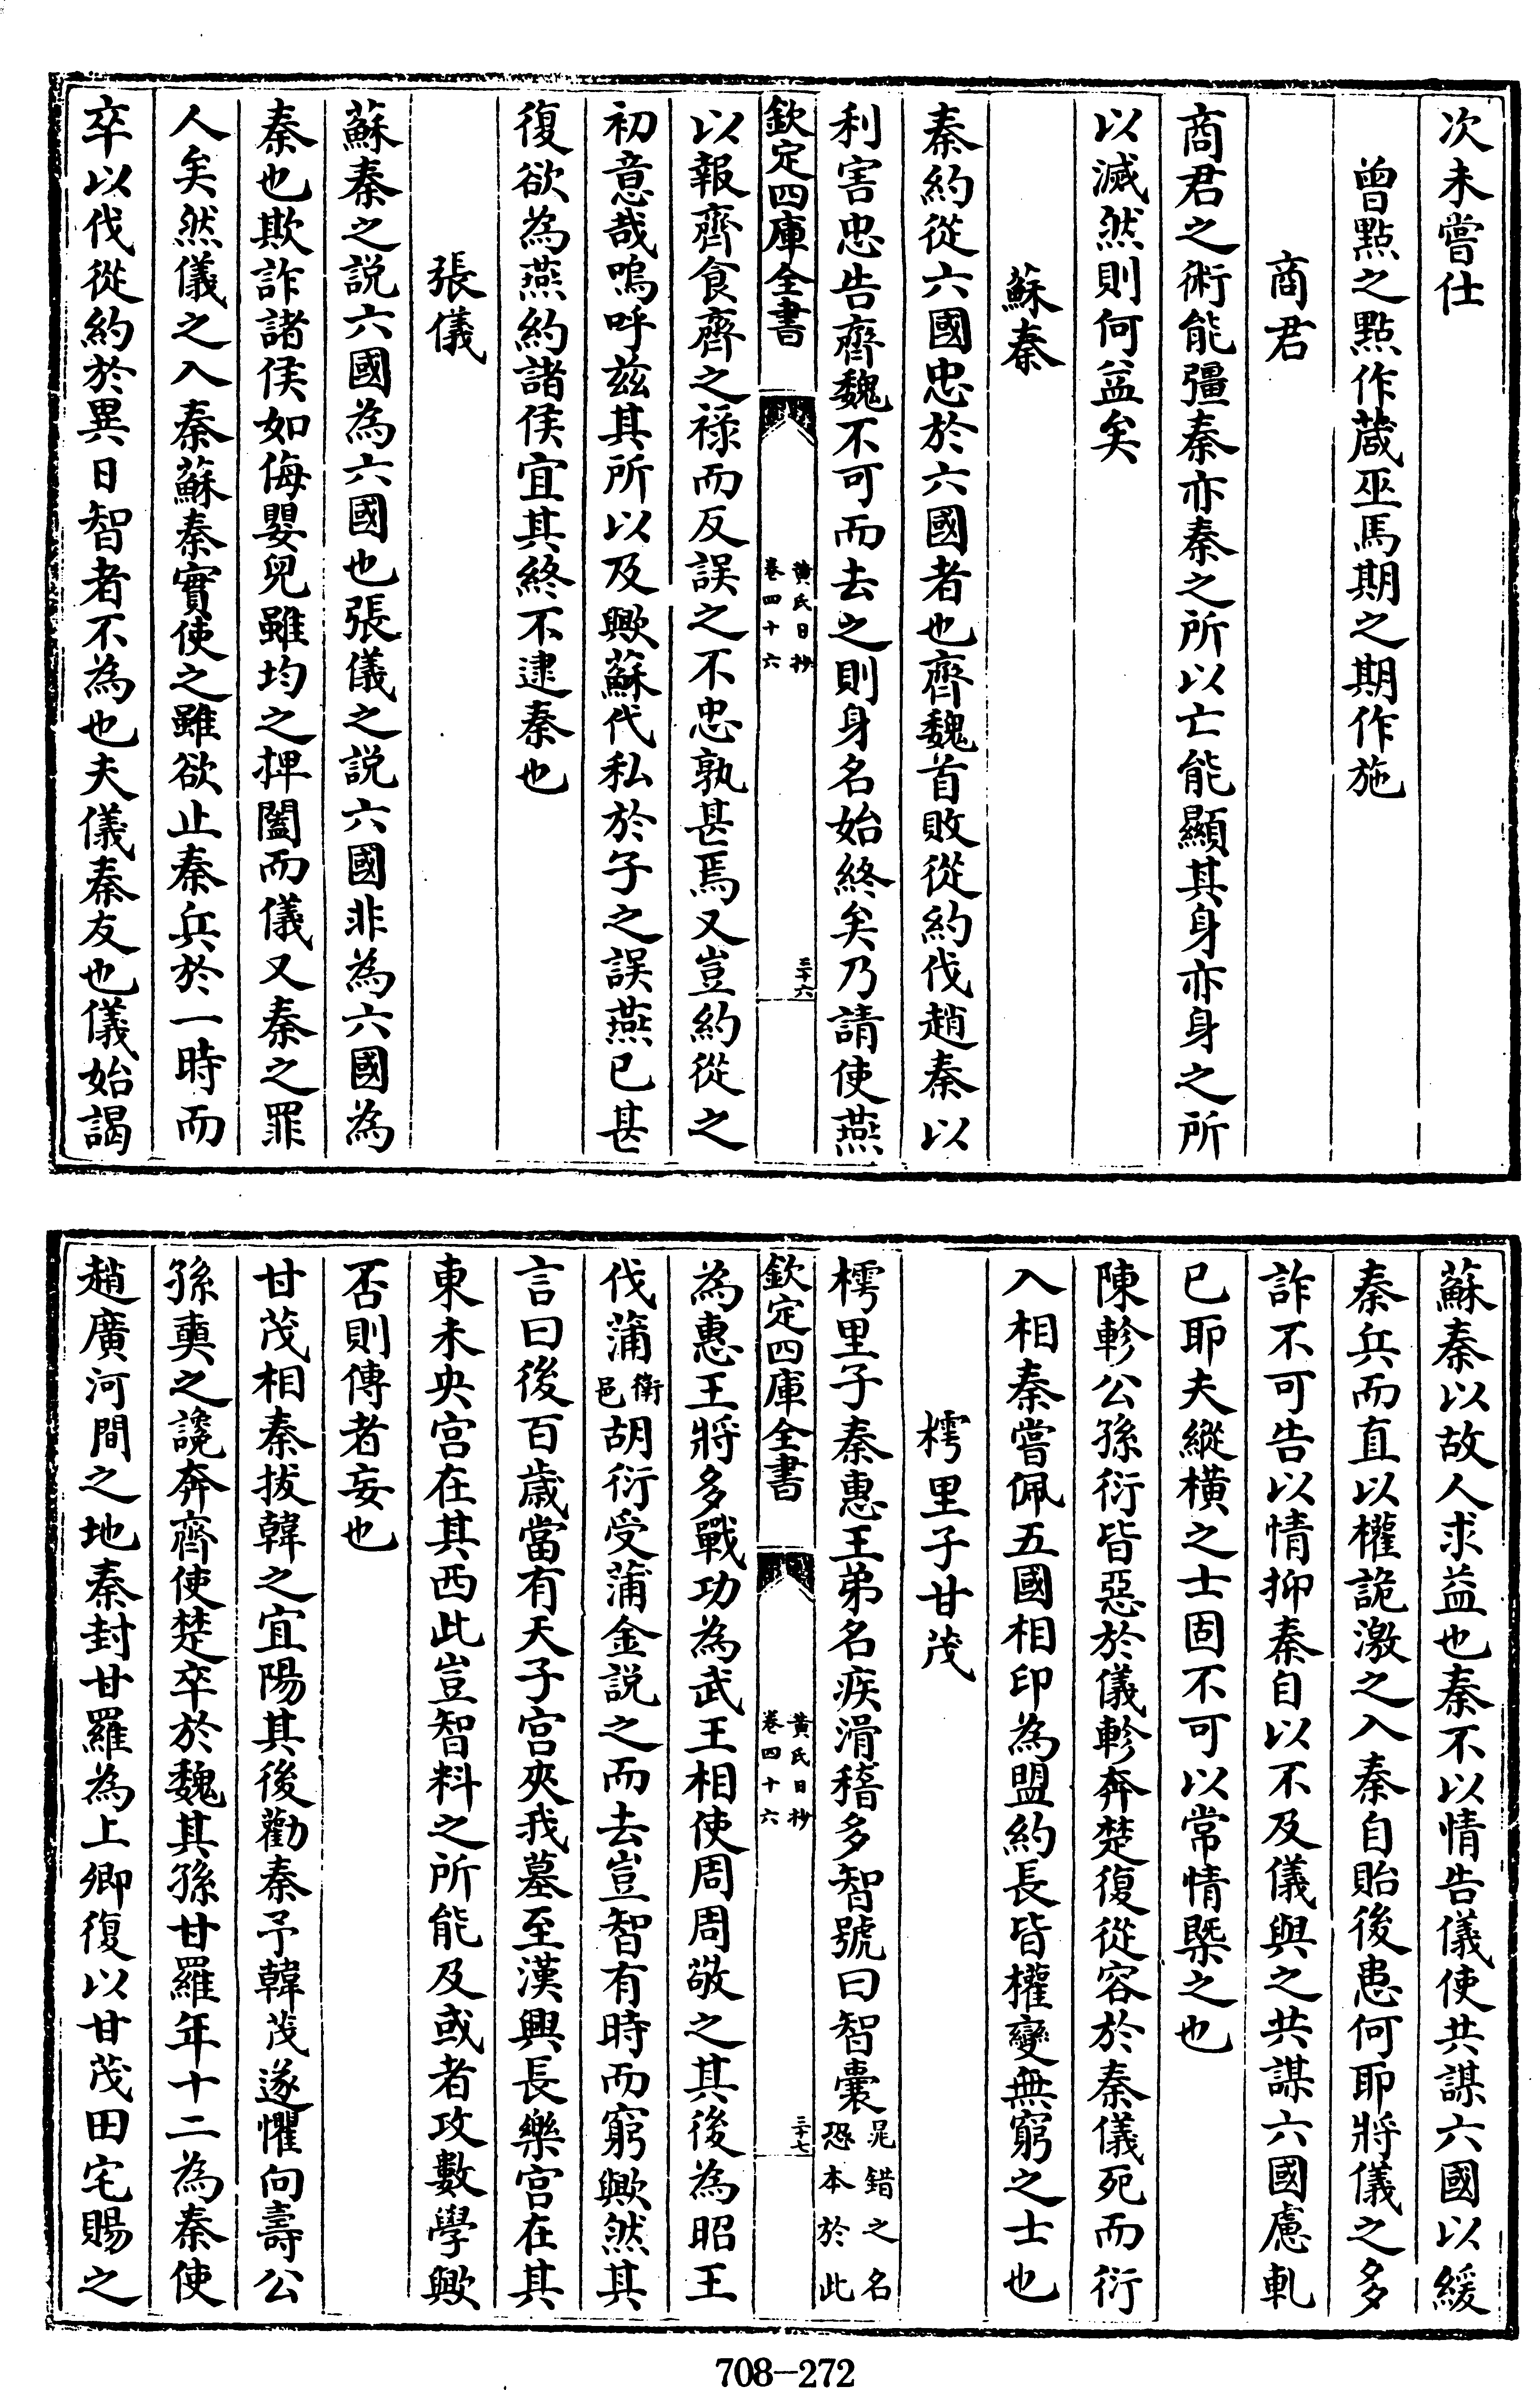 次未嘗仕
曾點之點作蒧巫馬期之期作施
商君
商君之術能彊秦亦秦之所以亡能顯其身亦身之所
以滅然則何益矣
蘇秦
秦約從六國忠於六國者也齊魏首敗從約伐趙秦以
利害忠告齊魏不可而去之則身名始終矣乃請使燕
欽定四庫全書
黄氏日抄
卷四十六
三十六
以報齊食齊之祿而反誤之不忠孰甚焉又豈約從之
初意哉嗚呼茲其所以及歟蘇代私於子之誤燕已甚
復欲為燕約諸侯宜其終不逮秦也
張儀
蘇秦之説六國為六國也張儀之説六國非為六國為
秦也欺詐諸侯如侮嬰兒雖均之捭闔而儀又秦之罪
人矣然儀之入秦蘇秦實使之雖欲止秦兵於一時而
卒以伐從約於異日智者不為也夫儀秦友也儀始謁
蘇秦以故人求益也秦不以情告儀使共謀六國以緩
秦兵而直以權詭激之入秦自貽後患何耶將儀之多
詐不可告以情抑秦自以不及儀與之共謀六國慮軋
已耶夫縱橫之士固不可以常情槩之也
陳軫公孫衍皆惡於儀軫奔楚復從容於秦儀死而衍
入相秦嘗佩五國相印為盟約長皆權變無窮之士也
樗里子甘茂
樗里子秦惠王弟名疾滑稽多智號曰智囊晁錯之名
恐本於此
欽定四庫全書
黄氏日抄
卷四十六
三十七
為惠王將多戰功為武王相使周周敬之其後為昭王
伐蒲衛
邑胡衍受蒲金説之而去豈智有時而窮歟然其
言曰後百歲當有天子宮夾我墓至漢興長樂宮在其
東未央宮在其西此豈智料之所能及或者攻數學歟
否則傳者妄也
甘茂相秦拔韓之宜陽其後勸秦予韓茂遂懼向壽公
孫奭之讒奔齊使楚卒於魏其孫甘羅年十二為秦使
趙廣河間之地秦封甘羅為上卿復以甘茂田宅賜之
708-272